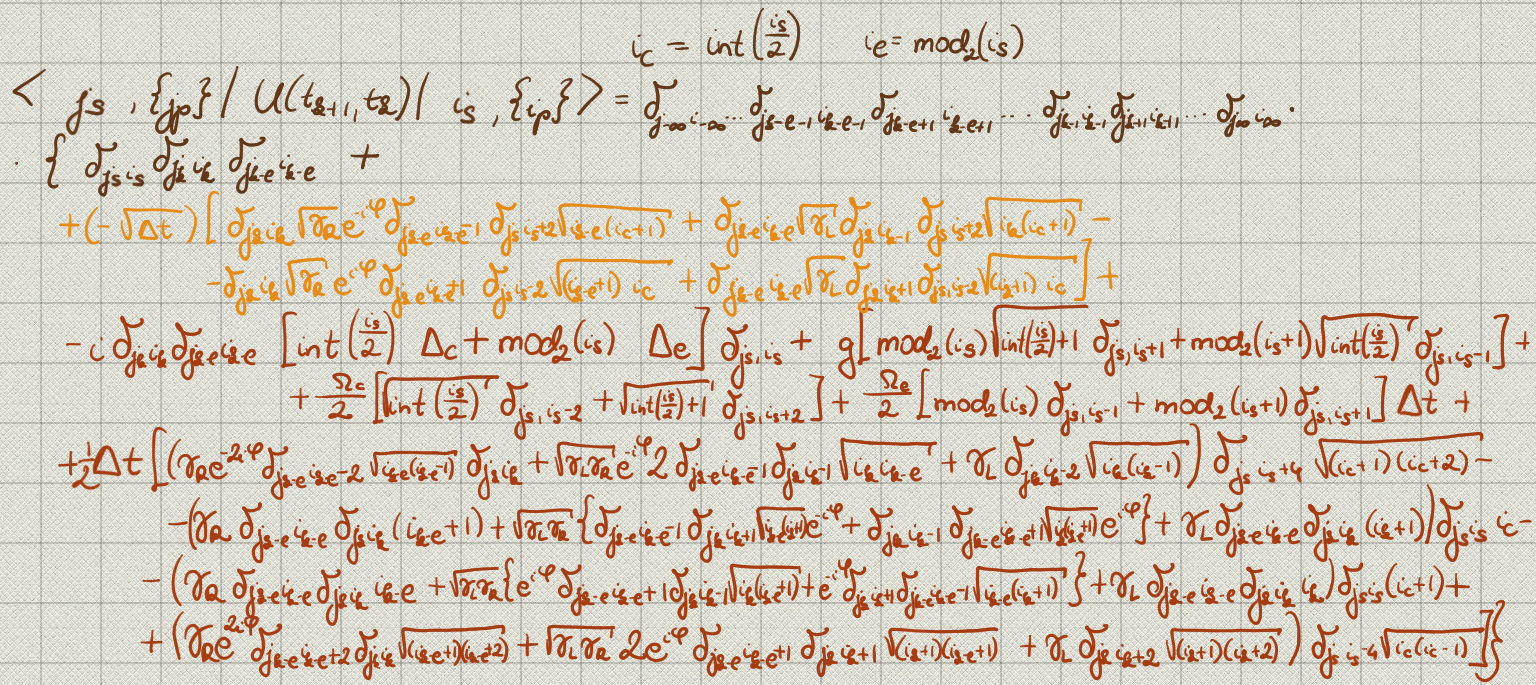 i_c = int(i_s/2)   i_e = mod_2(i_s)
< j_s , {j_p} / U(t_{k+1}, t_k) / i_s , {i_p} > = δ_{j_{-∞} i_{-∞}} ... δ_{j_{k-e-1} i_{k-e-1}} δ_{j_{k-e+1} i_{k-e+1}} ... δ_{j_{k-1} i_{k-1}} δ_{j_{k+1} i_{k+1}} ... δ_{j_∞ i_∞} ·
· { δ_{j_s i_s} δ_{j_k i_k} δ_{j_{k-e} i_{k-e}} +
+(-√Δt)[ δ_{j_k i_k} √γ_R e^{-iφ} δ_{j_{k-e} i_{k-e}-1} δ_{j_s i_s+2} √(i_{k-e}(i_c+1)) + δ_{j_{k-e} i_{k-e}} √γ_L δ_{j_k i_k-1} δ_{j_s i_s+2} √(i_k(i_c+1)) -
- δ_{j_k i_k} √γ_R e^{iφ} δ_{j_{k-e} i_{k-e}+1} δ_{j_s i_s-2} √((i_{k-e}+1) i_c) + δ_{j_{k-e} i_{k-e}} √γ_L δ_{j_k i_k+1} δ_{j_s, i_s-2} √((i_k+1) i_c) ] +
- i δ_{j_k i_k} δ_{j_{k-e} i_{k-e}} [ int(i_s/2) Δ_c + mod_2(i_s) Δ_e ] δ_{j_s, i_s} + g[ mod_2(i_s) √(int(i_s/2)+1) δ_{j_s, i_s+1} + mod_2(i_s+1) √(int(i_s/2)) δ_{j_s, i_s-1} ] +
+ Ω_c/2 [ √(int(i_s/2)) δ_{j_s, i_s-2} + √(int(i_s/2)+1) δ_{j_s, i_s+2} ] + Ω_e/2 [ mod_2(i_s) δ_{j_s, i_s-1} + mod_2(i_s+1) δ_{j_s, i_s+1} ] Δt +
+ 1/2 Δt [ (γ_R e^{-2iφ} δ_{j_{k-e} i_{k-e}-2} √(i_{k-e}(i_{k-e}-1)) δ_{j_k i_k} + √(γ_L γ_R) e^{-iφ} 2 δ_{j_{k-e} i_{k-e}-1} δ_{j_k i_k-1} √(i_k i_{k-e}) + γ_L δ_{j_k i_k-2} √(i_k(i_k-1)) ) δ_{j_s i_s+4} √((i_c+1)(i_c+2)) -
- (γ_R δ_{j_{k-e} i_{k-e}} δ_{j_k i_k} (i_{k-e}+1) + √(γ_L γ_R) { δ_{j_{k-e} i_{k-e}-1} δ_{j_k i_k+1} √(i_{k-e}(i_k+1)) e^{-iφ} + δ_{j_k i_k-1} δ_{j_{k-e} i_{k-e}+1} √(i_k(i_{k-e}+1)) e^{iφ} } + γ_L δ_{j_{k-e} i_{k-e}} δ_{j_k i_k} (i_k+1) ) δ_{j_s i_s} i_c -
- (γ_R δ_{j_{k-e} i_{k-e}} δ_{j_k i_k} i_{k-e} + √(γ_L γ_R) { e^{iφ} δ_{j_{k-e} i_{k-e}+1} δ_{j_k i_k-1} √(i_k(i_{k-e}+1)) + e^{-iφ} δ_{j_k i_k+1} δ_{j_{k-e} i_{k-e}-1} √(i_{k-e}(i_k+1)) } + γ_L δ_{j_{k-e} i_{k-e}} δ_{j_k i_k} i_k ) δ_{j_s i_s} (i_c+1) +
+ (γ_R e^{2iφ} δ_{j_{k-e} i_{k-e}+2} δ_{j_k i_k} √((i_{k-e}+1)(i_{k-e}+2)) + √(γ_L γ_R) 2e^{iφ} δ_{j_{k-e} i_{k-e}+1} δ_{j_k i_k+1} √((i_k+1)(i_{k-e}+1)) + γ_L δ_{j_k i_k+2} √((i_k+1)(i_k+2)) ) δ_{j_s i_s-4} √(i_c(i_c-1)) ] }